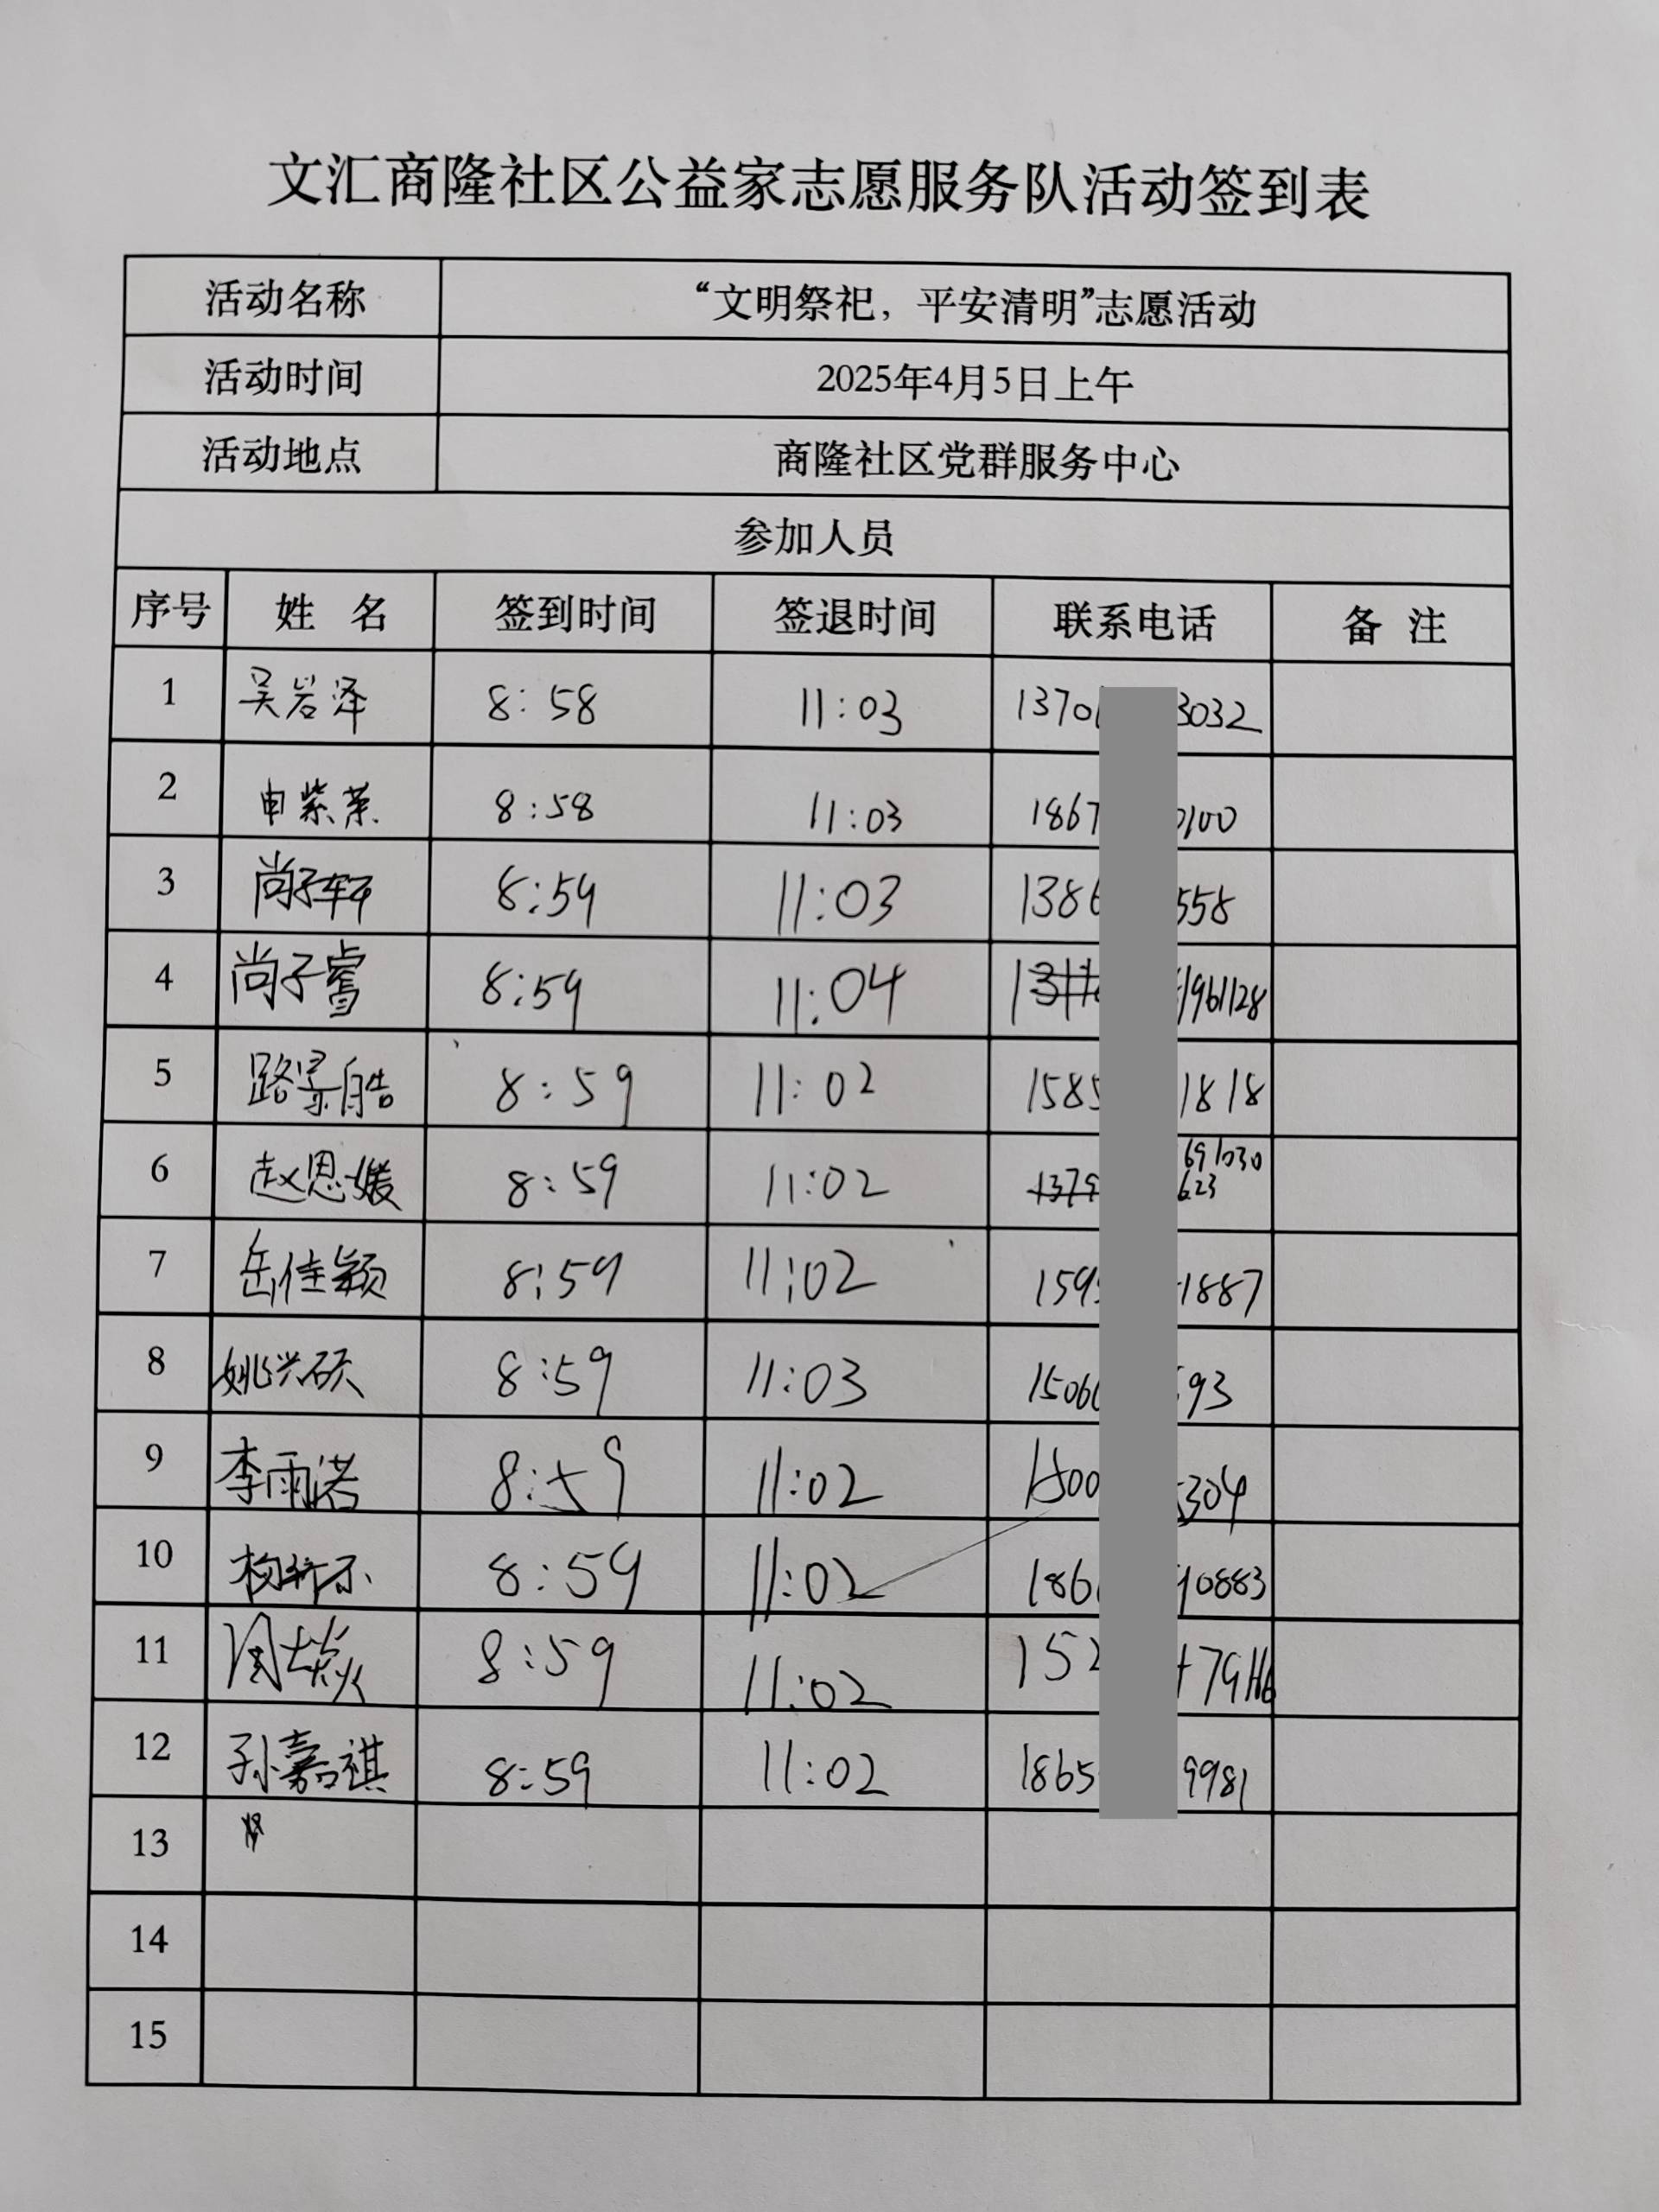 文汇商隆社区公益家志愿服务队活动签到表
活动名称 “文明祭祀，平安清明”志愿活动
活动时间 2025年4月5日上午
活动地点 商隆社区党群服务中心
参加人员
序号 姓 名 签到时间 签退时间 联系电话 备 注
1 吴岩泽 8:58 11:03 1370 3032
2 申紫 8:58 11:03 1867 0100
3 尚子轩 8:59 11:03 138 558
4 尚子睿 8:59 11:04 1961128
5 路景皓 8:59 11:02 1585 1818
6 赵恩媛 8:59 11:02 1379 691030
623
7 岳佳颖 8:59 11:02 159 1887
8 姚兴硕 8:59 11:03 1506 93
9 李雨诺 8:59 11:02 1500 304
10 8:59 11:02 186 0883
11 8:59 11:02 152
12 孙嘉祺 8:59 11:02 1865 9981
13
14
15